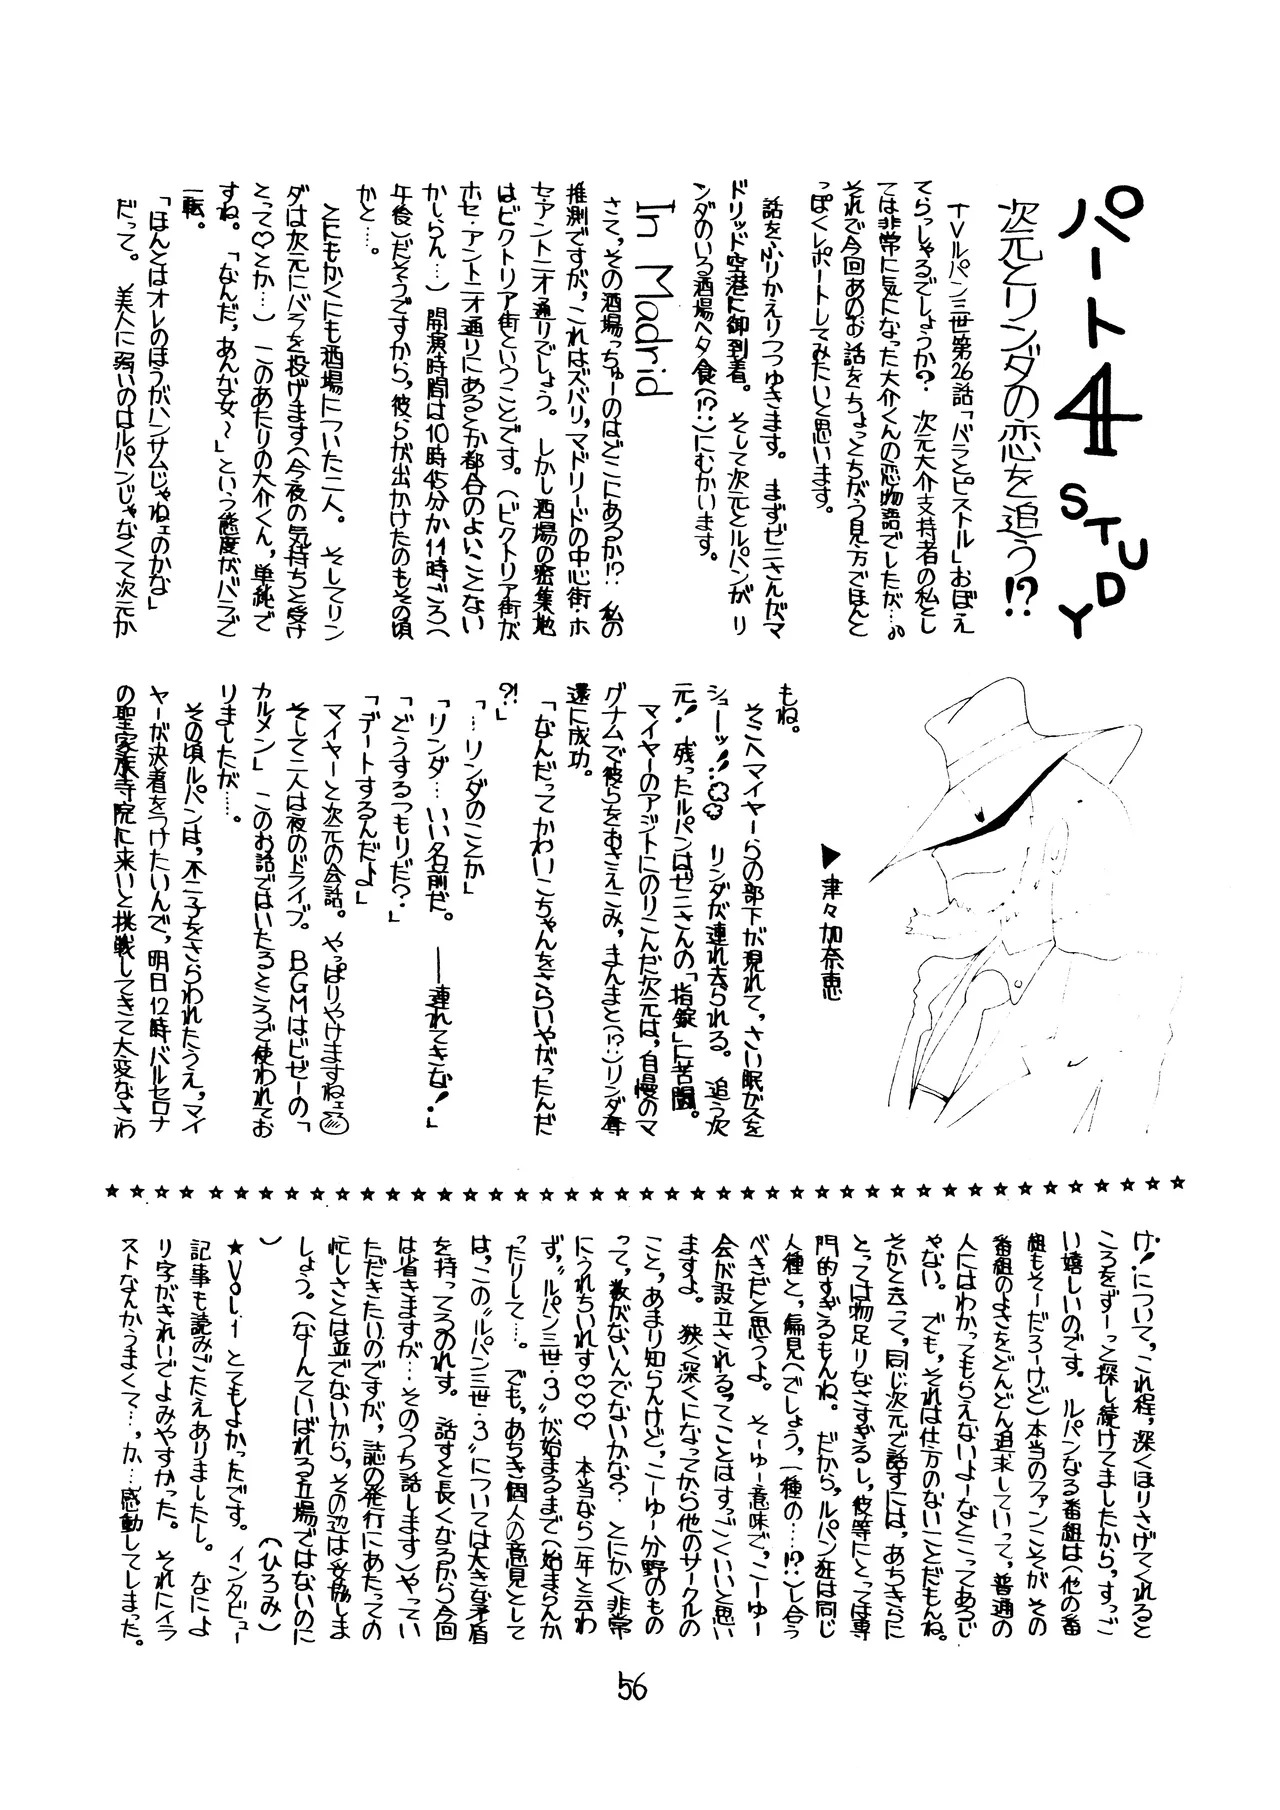 パート4 STUDY
次元とリンダの恋を追う!?
▶津々加奈恵
TVルパン三世第26話「バラとピストル」おぼえ
てらっしゃるでしょうか? 次元大介支持者の私とし
ては非常に気になった大介くんの恋物語でしたが…。
それで今回あのお話をちょっとちがう見方でほんと
っぽくレポートしてみたいと思います。
話をふりかえりつつゆきます。まずゼニさんがマ
ドリッド空港に御到着。そして次元とルパンがリ
ンダのいる酒場へ夕食(!?)にむかいます。
In Madrid
さて、その酒場っちゅーのはどこにあるか!? 私の
推測ですが、これはズバリ、マドリードの中心街・ホ
セ・アントニオ通りでしょう。しかし酒場の密集地
はビクトリア街ということです。(ビクトリア街が
ホセ・アントニオ通りにあるとか都合のよいことない
かしらん…) 開演時間は10時45分か11時ごろ(
午後)だそうですから、彼らが出かけたのもその頃
かと…。
とにもかくにも酒場についた二人。そしてリン
ダは次元にバラを投げます(今夜の気持ちと受け
とって♡とか…) このあたりの大介くん、単純で
すね。「なんだ、あんな女〜」という態度がバラで
一転。
「ほんとはオレのほうがハンサムじゃねェのかな」
だって。美人に弱いのはルパンじゃなくて次元か
もね。
そこへマイヤーらの部下が現れて、さい眠ガスを
シューッ!! リンダが連れ去られる。追う次
元! 残ったルパンはゼニさんの「指錠」に苦闘。
マイヤーのアジトにのりこんだ次元は、自慢のマ
グナムで彼らをおさえこみ、まんまと(!?)リンダ奪
還に成功。
「なんだってかわいこちゃんをさらいやがったんだ
?!」
「…リンダのことか」
「リンダ…いい名前だ。――連れてきな!」
「どうするつもりだ?」
「デートするんだよ」
マイヤーと次元の会話。やっぱりやけますねェ
そして二人は夜のドライブ。BGMはビゼーの「
カルメン」このお話ではいたるところで使われてお
りましたが…。
その頃ルパンは、不二子をさらわれたうえ、マイ
ヤーが決着をつけたいんで、明日12時バルセロナ
の聖家族寺院に来いと挑戦してきて大変なさわ
け!について、これ程、深くほりさげてくれると
ころをずーっと探し続けてましたから、すっご
い嬉しいのです。ルパンなる番組は(他の番
組もそーだろーけど)本当のファンこそがその
番組のよさをどんどん追求していって、普通の
人にはわかってもらえないよーなとこってあるじ
ゃない。でも、それは仕方のないことだもんね。
そかと云って、同じ次元で話すには、あちきらに
とっては物足りなさすぎるし、彼等にとっては専
門的すぎるもんね。だから、ルパン狂は同じ
人種と、偏見(でしょう、一種の…!?)し合う
べきだと思うよ。そーゆー意味で、こーゆー
会が設立されるってことはすっごくいいと思い
ますよ。狭く深くになってから他のサークルの
こと、あまり知らんけど、こーゆー分野のもの
って、数がないんでないかな? とにかく非常
にうれちいれす♡♡♡ 本当なら一年と云わ
ず、〝ルパン三世・3〟が始まるまで(始まらんか
ったりして…。でも、あちき個人の意見として
は、この〝ルパン三世・3〟については大きな矛盾
を持ってるのれす。話すと長くなるから今回
は省きますが…そのうち話します)やってい
ただきたいのですが、誌の発行にあたっての
忙しさとは並でないから、その辺は妥協しま
しょう。(なーんていばれる立場ではないのに
) (ひろみ)
★Vol.1 とてもよかったです。インタビュー
記事も読みごたえありましたし。なによ
り字がきれいでよみやすかった。それにイラ
ストなんかうまくて…、か…感動してしまった。
56